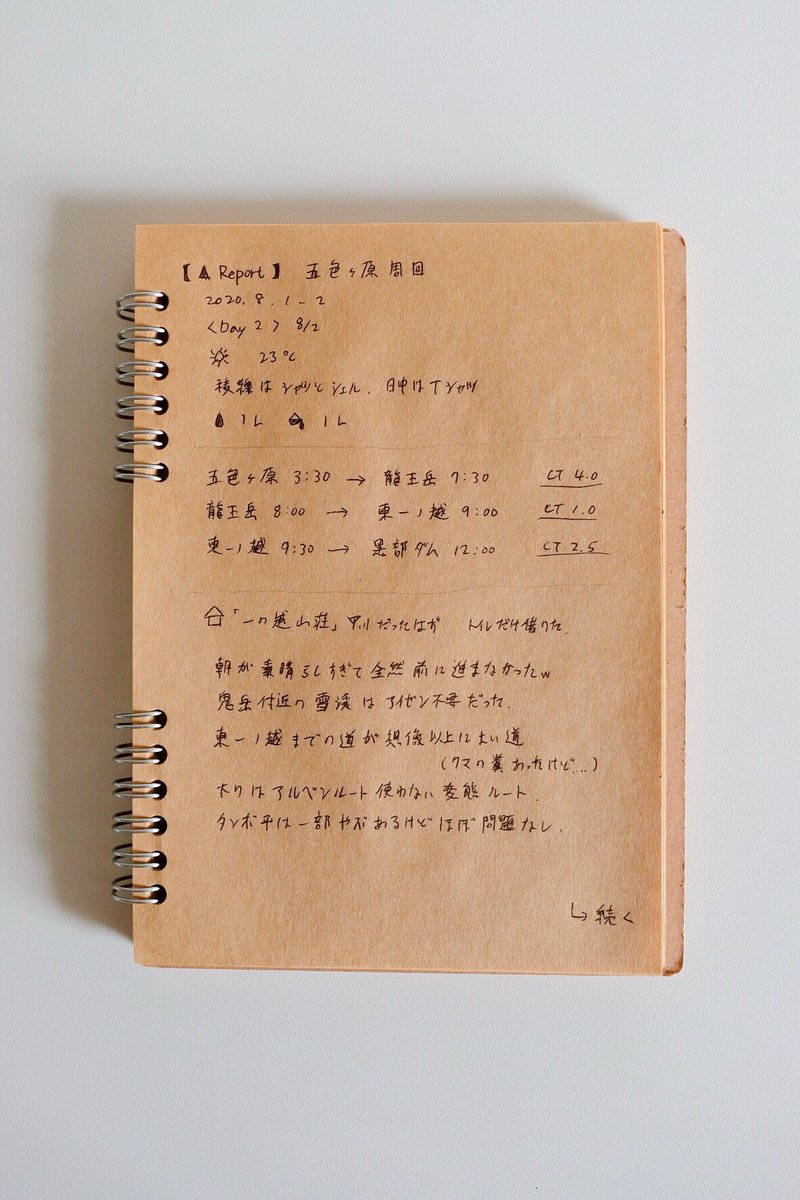 【▲ Report】 五色ヶ原周回
2020. 8. 1 - 2
<Day 2> 8/2
23℃
稜線はシャツとシェル、日中はTシャツ
1L 1L
五色ヶ原 3:30 → 龍王岳 7:30 CT 4.0
龍王岳 8:00 → 東一ノ越 9:00 CT 1.0
東一ノ越 9:30 → 黒部ダム 12:00 CT 2.5
「一の越山荘」 トイレだけ借りた.
朝が素晴らしすぎて全然前に進まなかったw
鬼岳付近の雪渓はアイゼン不要だった.
東一ノ越までの道が想像以上に
(クマの糞あったけど...)
はアルペンルート使わない変態ルート.
タンボ平は一部やぶあるけどほぼ問題なし.
↳ 続く